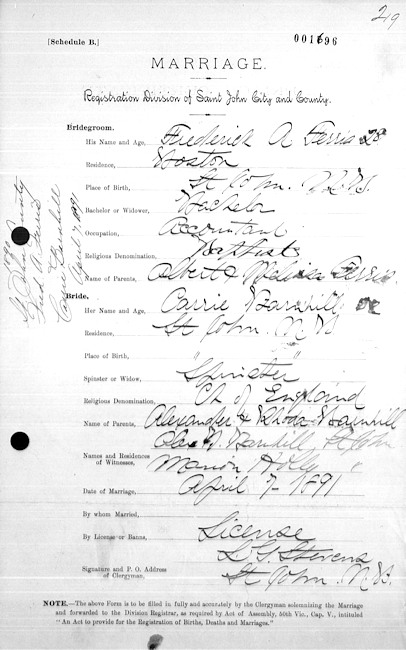 29
[Schedule B.]
001696
MARRIAGE.
Registration Division of Saint John City and County.
Bridegroom.
His Name and Age, Frederick A Ferris 28
Residence, Boston
Place of Birth, St John. N.B.
Bachelor or Widower, Bachelor
Occupation, Accountant
Religious Denomination, Baptist
Name of Parents, Ferris
Bride.
Her Name and Age, Carrie Barnhill
Residence, St John. N.B
Place of Birth, " "
Spinster or Widow, Spinster
Religious Denomination, Ch of England
Name of Parents, Alexander & Rhoda Barnhill
Barnhill, St John
Names and Residences
of Witnesses, Marion "
Date of Marriage, April 7 - 1891
By whom Married,
By License or Banns, License
L G Stevens
Signature and P. O. Address
of Clergyman, St John. N.B.
NOTE.—The above Form is to be filed in fully and accurately by the Clergyman solemnizing the Marriage
and forwarded to the Division Registrar, as required by Act of Assembly, 50th Vic., Cap. V., intituled
"An Act to provide for the Registration of Births, Deaths and Marriages."
St John County
Fred A. Ferris
Carrie Barnhill
April 7, 1891